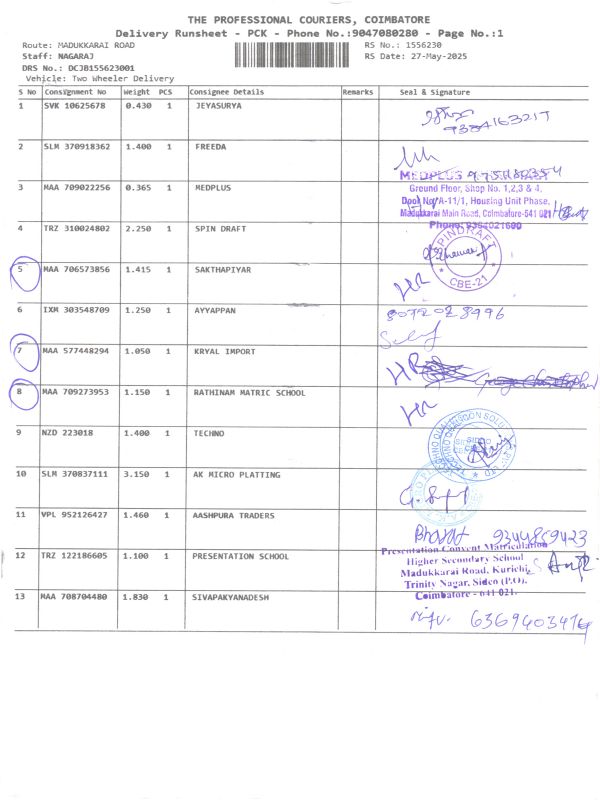 THE PROFESSIONAL COURIERS, COIMBATORE
Delivery Runsheet - PCK - Phone No.:9047080280 - Page No.:1
Route: MADUKKARAI ROAD RS No.: 1556230
Staff: NAGARAJ RS Date: 27-May-2025
DRS No.: DCJB155623001
Vehicle: Two Wheeler Delivery
S No Consignment No Weight PCS Consignee Details Remarks Seal & Signature
1 SVK 10625678 0.430 1 JEYASURYA
2 SLM 370918362 1.400 1 FREEDA
MEDPLUS
3 MAA 709022256 0.365 1 MEDPLUS Ground Floor, Shop No. 1,2,3 & 4,
Door No/A-11/1, Housing Unit Phase,
Madukkarai Main Road, Coimbatore-641 021
Phone: 9384021600
4 TRZ 310024802 2.250 1 SPIN DRAFT SPINDRAFT CBE-21
5 MAA 706573856 1.415 1 SAKTHAPIYAR HR
6 IXM 303548709 1.250 1 AYYAPPAN 8072028996
Self
7 MAA 577448294 1.050 1 KRYAL IMPORT HR
8 MAA 709273953 1.150 1 RATHINAM MATRIC SCHOOL HR
9 NZD 223018 1.400 1 TECHNO
10 SLM 370837111 3.150 1 AK MICRO PLATTING
11 VPL 952126427 1.460 1 AASHPURA TRADERS Bharat 9344859423
Presentation Convent Matriculation
12 TRZ 122186605 1.100 1 PRESENTATION SCHOOL Higher Secondary School
Madukkarai Road, Kurichi,
Trinity Nagar, Sidco (P.O).
Coimbatore - 641 021.
13 MAA 708704480 1.830 1 SIVAPAKYANADESH 6369403414